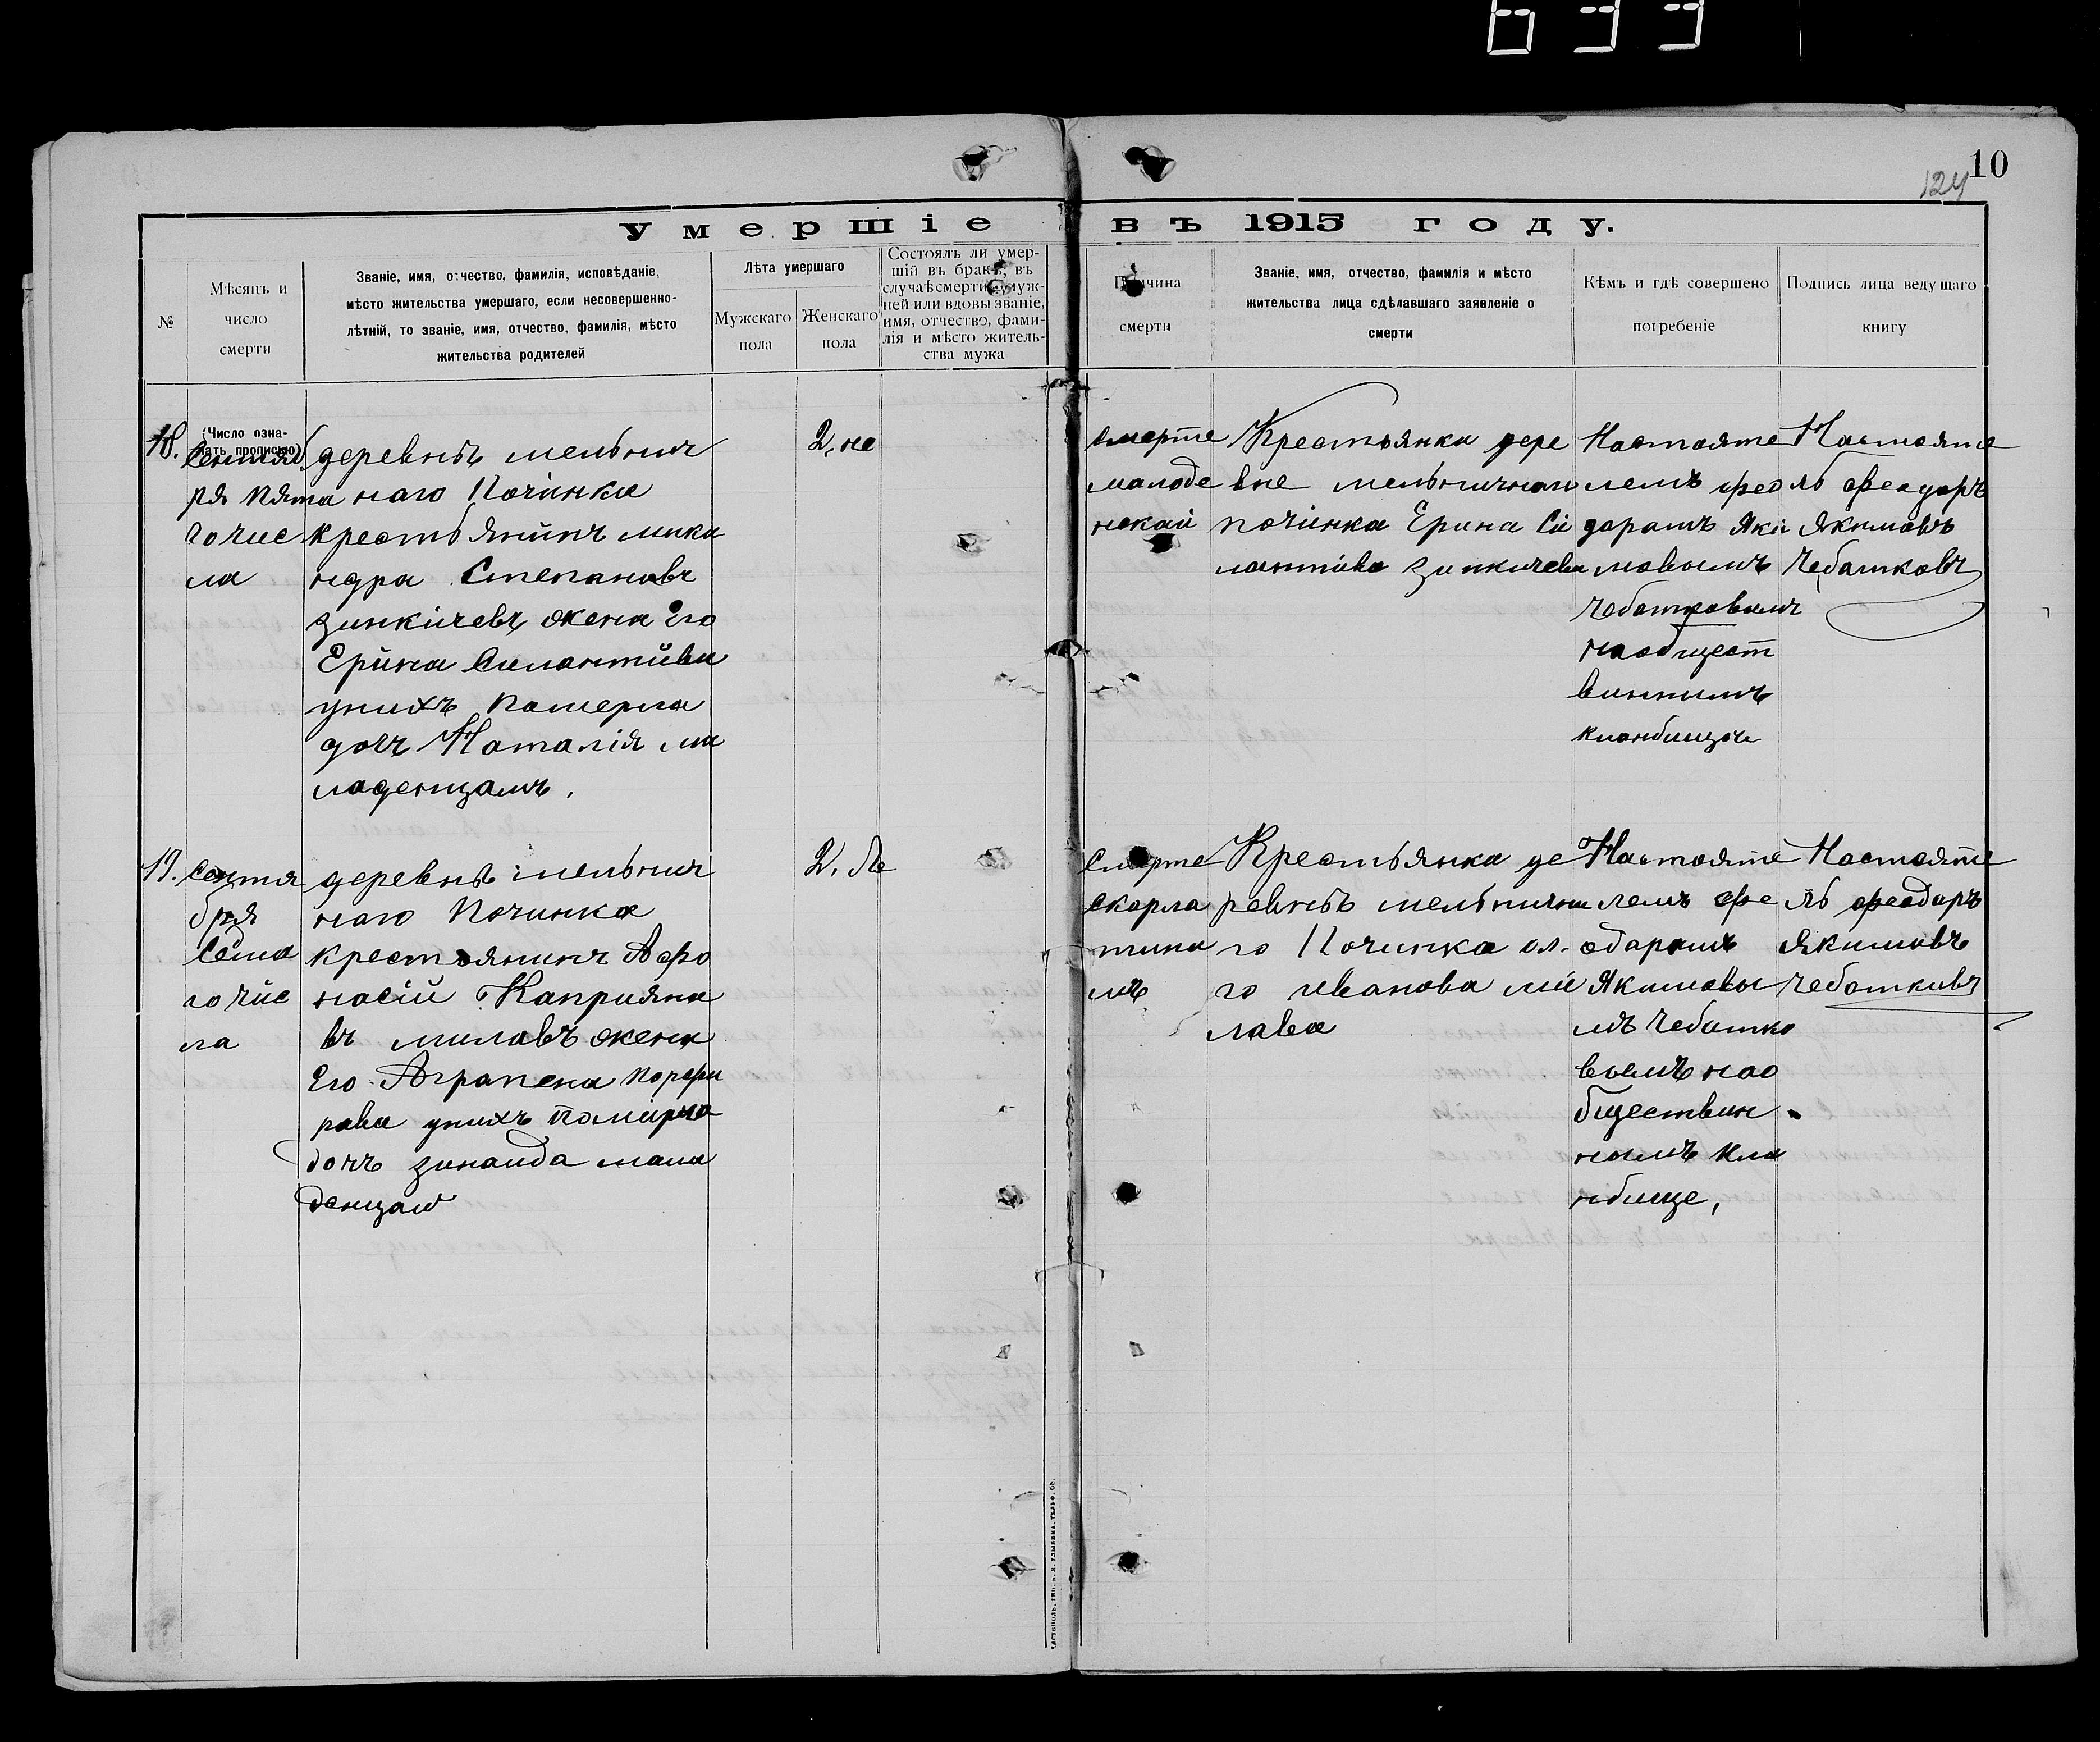 633
10
124
Умершіе въ 1915 году.
№
Мѣсяцъ и
число
смерти
Званіе, имя, отчество, фамилія, исповѣданіе,
мѣсто жительства умершаго, если несовершенно-
лѣтній, то званіе, имя, отчество, фамилія, мѣсто
жительства родителей
Лѣта умершаго
Мужскаго
пола
Женскаго
пола
Состоялъ ли умер-
шій въ бракѣ, въ
случаѣ смерти замуж-
ней или вдовы званіе,
имя, отчество, фами-
лія и мѣсто житель-
ства мужа
Причина
смерти
Званіе, имя, отчество, фамилія и мѣсто
жительства лица сдѣлавшаго заявленіе о
смерти
Кѣмъ и гдѣ совершено
погребеніе
Подпись лица ведущаго
книгу
18.
(Число озна-
чать прописью)
Сентяб
ря пята
го чис
ла
деревнѣ мельнич
наго Почінка
крестьянинъ мика
ндра Степановъ
зинкічевъ жена Его
Ерина Силантиева
унихъ Померла
дочъ Наталія мла
ладенцамъ.
2, не
смерте
малоде
нокай
Крестьянка дере
вне мельничнаи
почінка Ерина Си
лантива зинкичева
Настояте
лемъ фео
дорамъ Яки
мовымъ
чеботковымъ
наобщест
виннымъ
кланбищи
Настояте
ль феодоръ
Якимовъ
Чебатковъ
19.
сентя
бря
сема
го чис
ла
деревнѣ мельнич
наго Починка
крестьянинъ Афо
насій Каприяна
въ миловъ жена
Его Аграпена порфи
рава унихъ Помірла
дочъ зинаида мала
денцам
2. Ле
смерте
скарла
тина
мъ
Крестьянка де
ревнѣ мельнични
го Починка ол.
го иванова ми
лава
Настояте
лемъ фе
одарамъ
Якимовы
мъ чебатко
вымъ нао
бществин
нымъ кла
нбище,
Настояте
ль феодаръ
Якимовъ
чеботкивъ